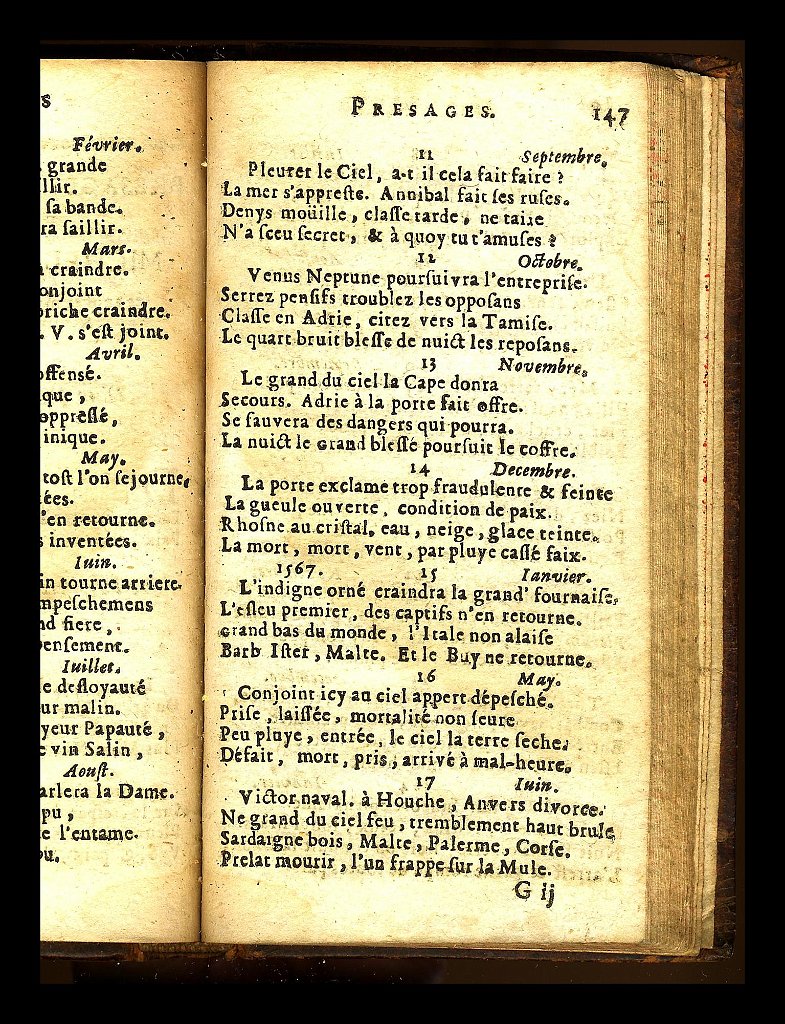 s
Février.
grande
llir.
sa bande.
ra saillir.
Mars.
craindre.
onjoint
briche craindre.
. V. s'est joint.
Avril.
offensé.
que ,
oppressé,
inique.
May.
tost l'on sejourne,
ées.
'en retourne.
s inventées.
Iuin.
in tourne arriere.
mpeschemens
nd fiere ,
pensement.
Iuillet.
e desloyauté
ur malin.
yeur Papauté ,
e vin Salin ,
Aoust.
arlera la Dame.
pu ,
e l'entame.
pu.
PRESAGES. 147
11 Septembre.
Pleurer le Ciel, a-t il cela fait faire ?
La mer s'appreste. Annibal fait ses ruses.
Denys moüille, classe tarde, ne taire
N'a sceu secret, & à quoy tu t'amuses ?
12 Octobre.
Venus Neptune poursuivra l'entreprise.
Serrez pensifs troublez les opposans
Classe en Adrie, citez vers la Tamise.
Le quart bruit blesse de nuict les reposans.
13 Novembre.
Le grand du ciel la Cape donra
Secours. Adrie à la porte fait offre.
Se sauvera des dangers qui pourra.
La nuict le Grand blessé poursuit le coffre.
14 Decembre.
La porte exclame trop fraudulente & feinte
La gueule ouverte, condition de paix.
Rhosne au cristal, eau, neige, glace teinte.
La mort, mort, vent, par pluye cassé faix.
1567. 15 Ianvier.
L'indigne orné craindra la grand' fournaise,
L'esleu premier, des captifs n'en retourne.
Grand bas du monde, l'Itale non alaise
Barb Ister, Malte. Et le Buy ne retourne.
16 May.
Conjoint icy au ciel appert dépesché.
Prise, laissée, mortalité non seure
Peu pluye, entrée, le ciel la terre seche.
Défait, mort, pris, arrivé à mal-heure.
17 Iuin.
Victor naval. à Houche, Anvers divorce.
Ne grand du ciel feu, tremblement haut brule
Sardaigne bois, Malte, Palerme, Corse.
Prelat mourir, l'un frappe sur la Mule.
G ij